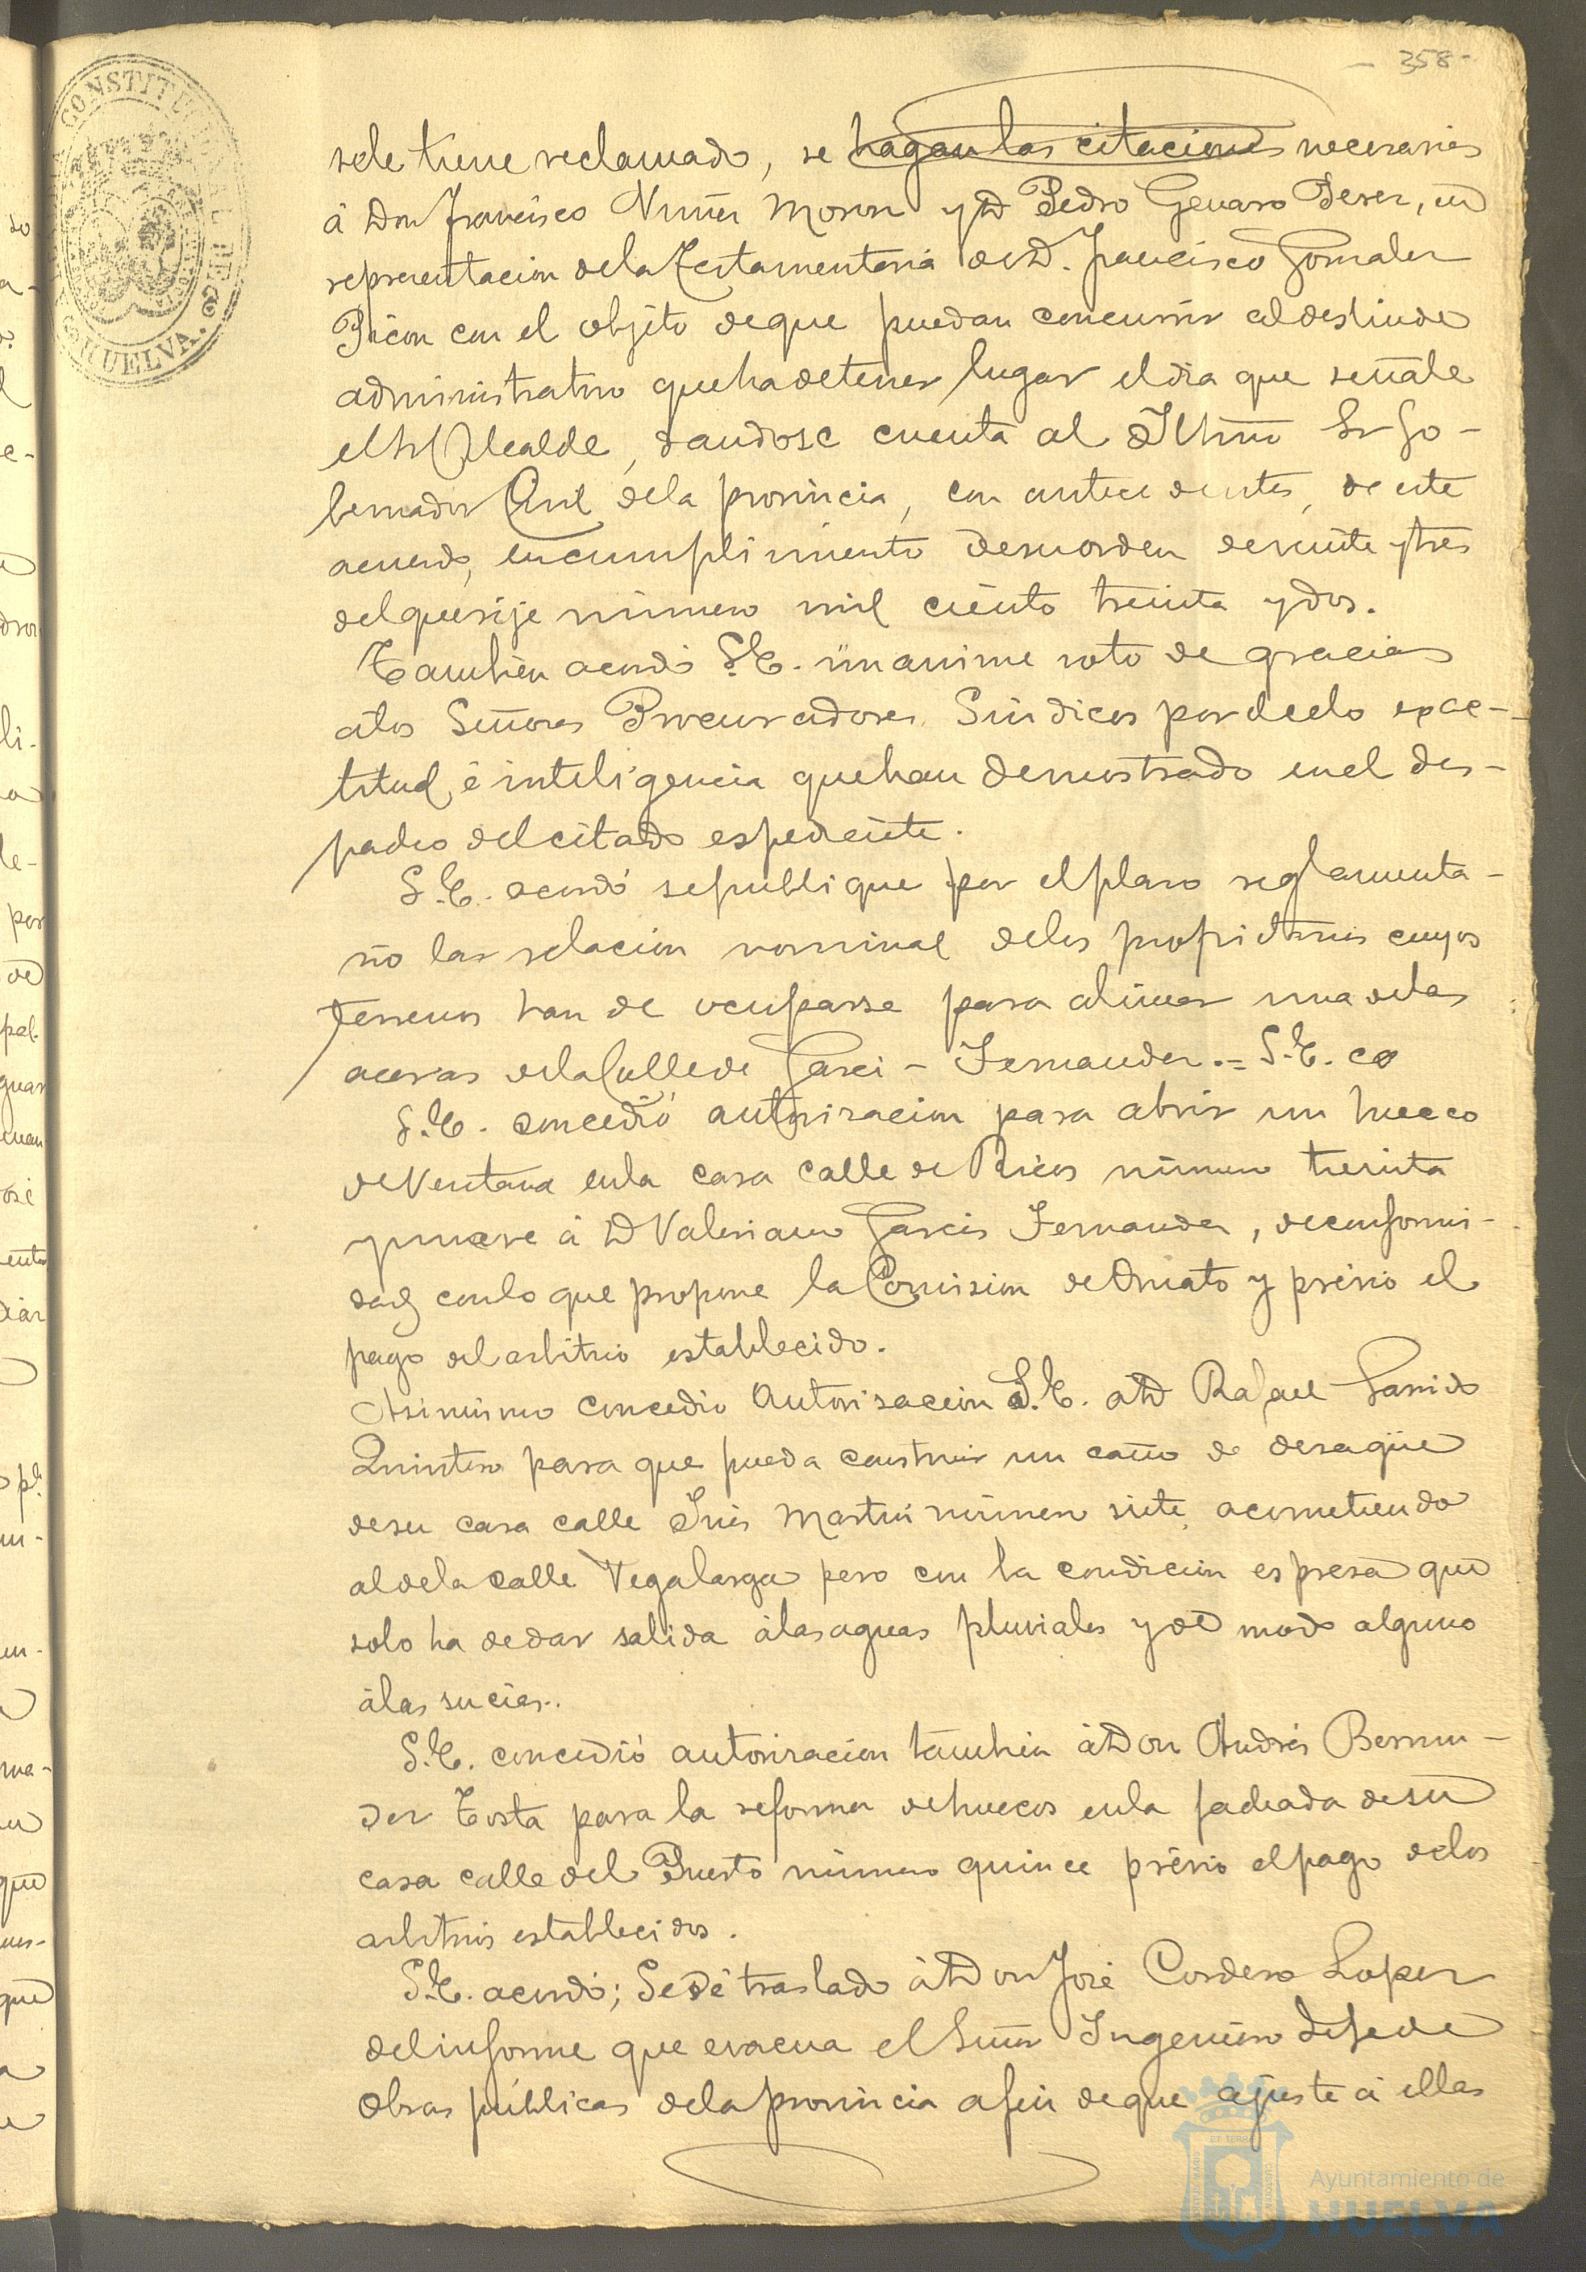 358
se le tiene reclamado, se hagan las citaciones necesarias
á Don Francisco Nuñez Moron y D Pedro Genaro Perez, en
representacion de la Testamentaria de D. Francisco Gonzalez
Picon con el objeto de que puedan concurrir al deslinde
administrativo que ha de tener lugar el dia que señale
el Sr Alcalde, dandose cuenta al Iltmo Sr Go-
bernador Civil de la provincia, con antecedentes, de este
acuerdo, en cumplimiento de su orden de veinte y tres
del que rije número mil ciento treinta y dos.
Tambien acordó S.E. únanime voto de gracias
a los Señores Procuradores Sindicos por el celo exac-
titud, é inteligencia que han demostrado en el des-
pacho del citado espediente.
S.E. acordó se publique por el plazo reglamenta-
rio las relacion nominal de los propietarios cuyos
terrenos han de ocuparse para alinear una de las
aceras de la Calle de Garci-Fernandez.= S.E. co
S.E. concedió autorizacion para abrir un hueco
de Ventana en la casa calle de Ricos número treinta
y nueve á D Valeriano Garcia Fernandez, de conformi-
dad con lo que propone la Comision de Ornato y prévio el
pago del arbitrio establecido.
Asimismo concedio Autorizacion S.E. a D Rafael Garrido
Quintero para que pueda construir un caño de desagüe
de su casa calle Tres Martin número siete acometiendo
al de la calle Vegalarga pero con la condicion espresa que
solo ha de dar salida á las aguas pluviales y de modo alguno
á las sucias.
S.E. concedió autorizacion tambien á Don Andrés Bermu-
dez Tosta para la reforma de huecos en la fachada de su
casa calle del Puerto número quince prévio el pago de los
arbitrios establecidos.
S.E. acordó; Se dé traslado á Don José Cordero Lopez
del informe que evacua el Señor Ingeniero Jefe de
Obras públicas de la provincia a fin de que ajuste á ellas
CONSTITUCIONAL DE HUELVA.
Ayuntamiento de
HUELVA